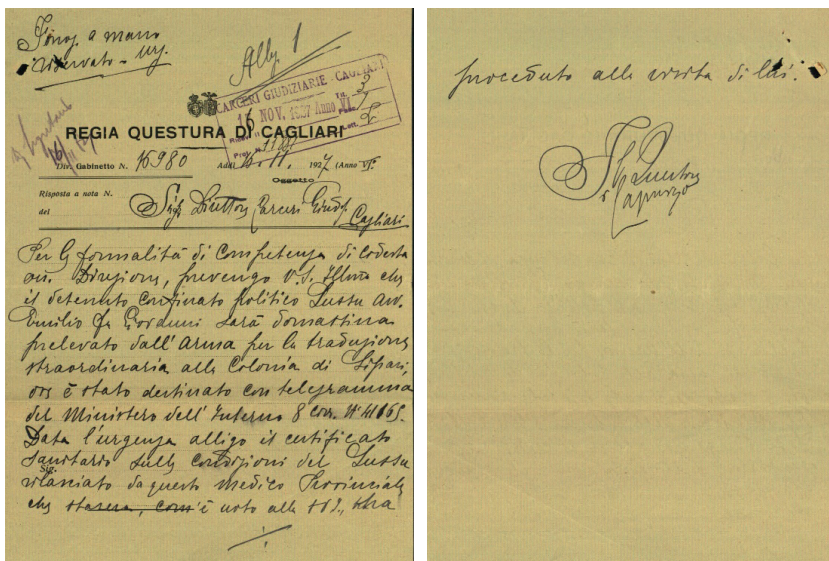 a mano
riservato - urg.
All. 1
CARCERI GIUDIZIARIE - CAGLIARI
16 NOV. 1927 Anno VI
REGIA QUESTURA DI CAGLIARI
Div. Gabinetto N. 16980 Addì 16. 11. 1927 (Anno VIº
Oggetto
Risposta a nota N.
del
Sig. Direttore Carceri Giud.
Cagliari
Per le formalità di competenza di codesta
on. Direzione, prevengo V.S. Ill.ma che
il detenuto confinato politico Lussu Avv.
Emilio fu Giovanni sarà domattina
prelevato dall'Arma per la traduzione
straordinaria alla Colonia di Lipari,
ove è stato destinato con telegramma
del Ministero dell'Interno 8 corr. Nº 41165.
Data l'urgenza alligo il certificato
sanitario sulle condizioni del Lussu
Sig.
rilasciato da questo Medico Provinciale
che stasera, com'è noto alla S.V., ha
proceduto alla visita di lui.
Il Questore